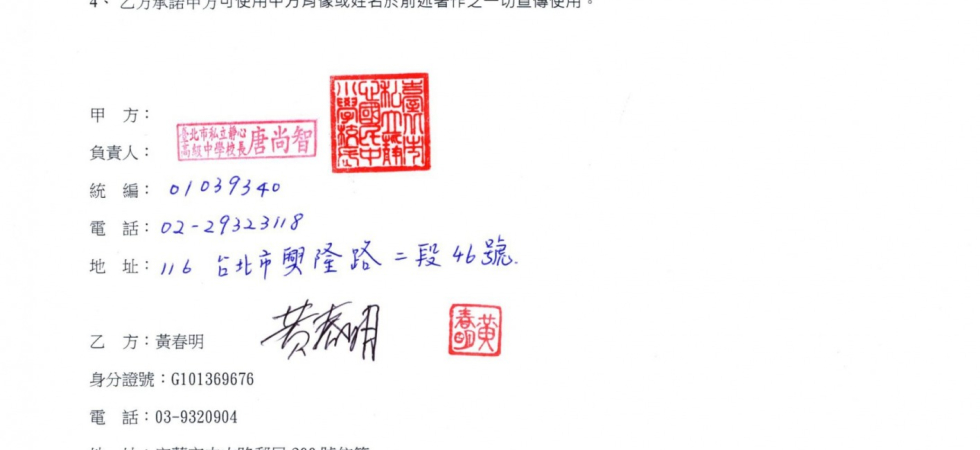 4、 乙方承諾甲方可使用甲方肖像或姓名於前述著作之一切宣傳使用。
甲 方：
負責人：
臺北市私立靜心
高級中學校長 唐尚智
臺北市
私立靜
心國民中
小學校
統 編：01039340
電 話：02-29323118
地 址：116 台北市興隆路二段46號.
乙 方：黃春明 黃春明
黃春明
身分證號：G101369676
電 話：03-9320904